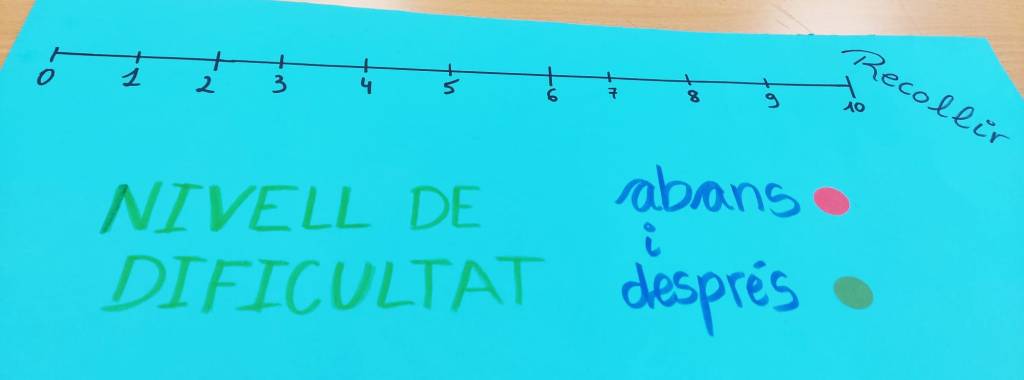 0 1 2 3 4 5 6 7 8 9 10
Recollir
NIVELL DE
DIFICULTAT
abans
i
després